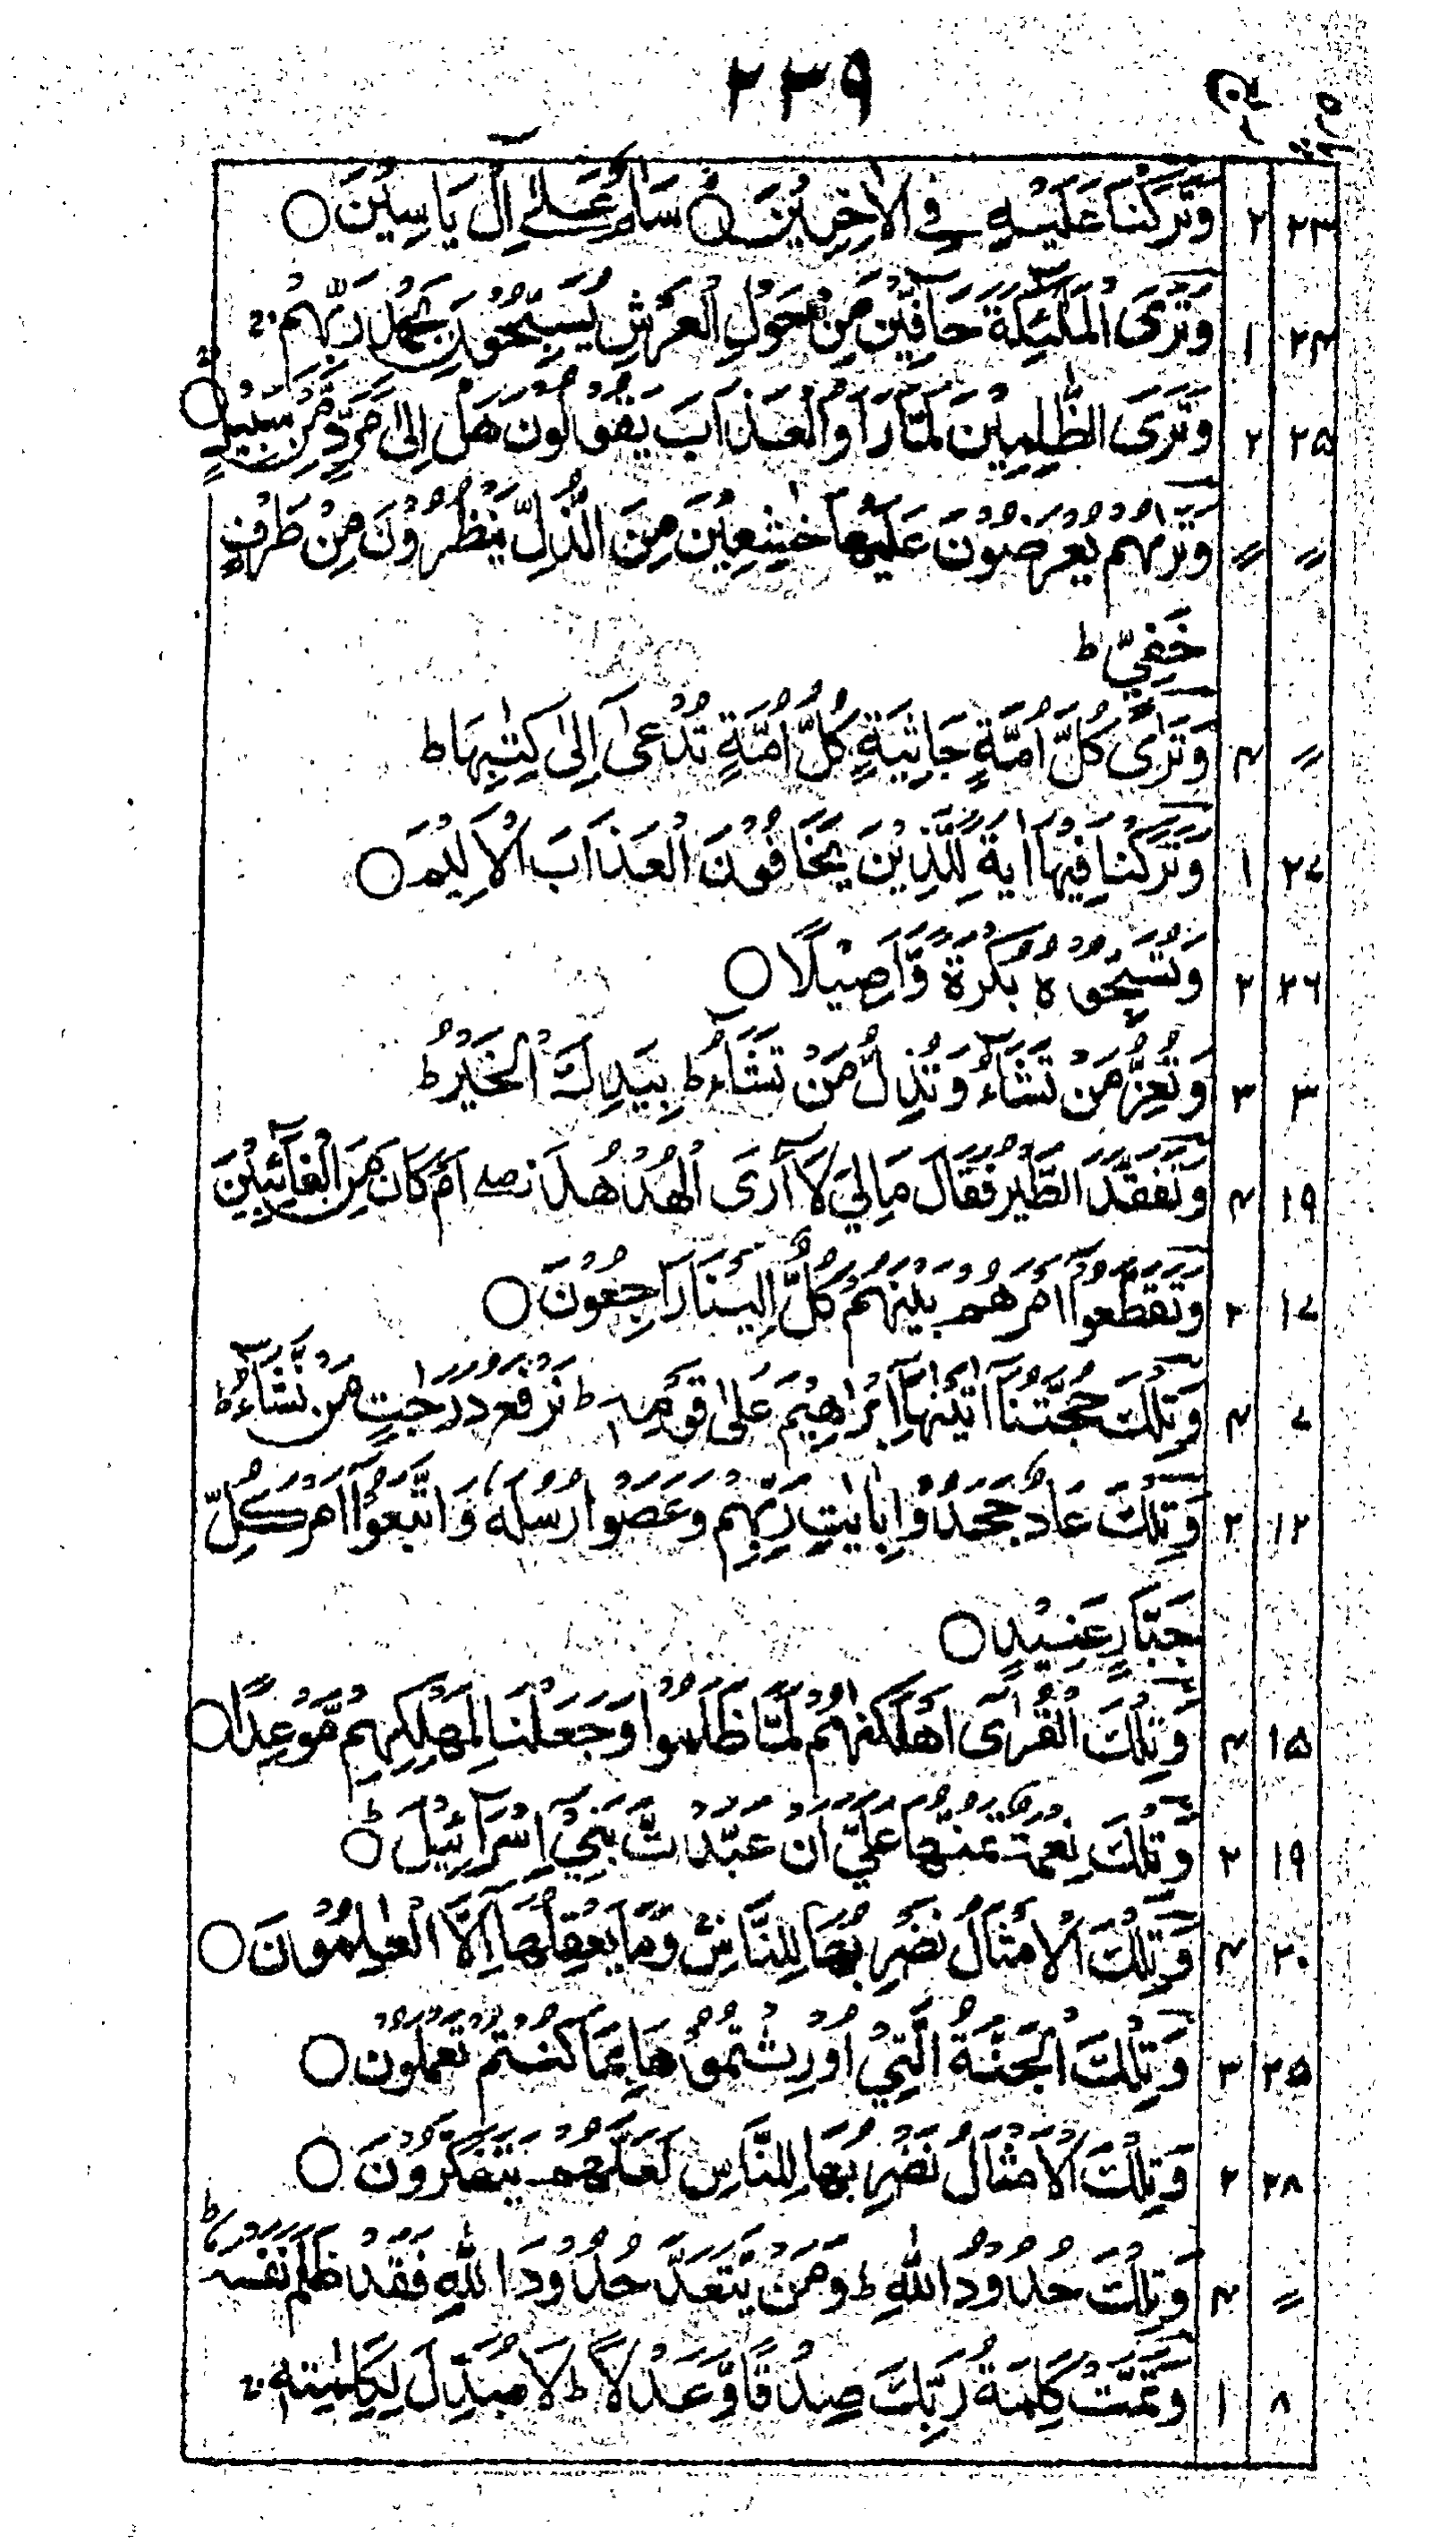 ٢٣٩
٢٣ ٢ وَتَرَكْنَا عَلَيْهِ فِي الْاٰخِرِيْنَ ○ سَلٰمٌ عَلٰٓى اِلْ يَاسِيْنَ ○
٢٤ ١ وَتَرَى الْمَلٰٓئِكَةَ حَآفِّيْنَ مِنْ حَوْلِ الْعَرْشِ يُسَبِّحُوْنَ بِحَمْدِ رَبِّهِمْ
٢٥ ٢ وَتَرَى الظّٰلِمِيْنَ لَمَّا رَاَوُا الْعَذَابَ يَقُوْلُوْنَ هَلْ اِلٰى مَرَدٍّ مِّنْ سَبِيْلٍ ○
〃 〃 وَتَرٰىهُمْ يُعْرَضُوْنَ عَلَيْهَا خٰشِعِيْنَ مِنَ الذُّلِّ يَنْظُرُوْنَ مِنْ طَرْفٍ
خَفِيٍّ ط
〃 ٤ وَتَرٰى كُلَّ اُمَّةٍ جَاثِيَةً كُلُّ اُمَّةٍ تُدْعٰٓى اِلٰى كِتٰبِهَا ط
٢٧ ١ وَتَرَكْنَا فِيْهَا اٰيَةً لِّلَّذِيْنَ يَخَافُوْنَ الْعَذَابَ الْاَلِيْمَ ○
٢٦ ٢ وَتُسَبِّحُوْهُ بُكْرَةً وَّاَصِيْلًا ○
٣ ٣ وَتُعِزُّ مَنْ تَشَآءُ وَتُذِلُّ مَنْ تَشَآءُ ط بِيَدِكَ الْخَيْرُ ط
١٩ ٤ وَتَفَقَّدَ الطَّيْرَ فَقَالَ مَالِيَ لَآ اَرَى الْهُدْهُدَ صلے اَمْ كَانَ مِنَ الْغَآئِبِيْنَ
١٧ ٢ وَتَقَطَّعُوْٓا اَمْرَهُمْ بَيْنَهُمْ كُلٌّ اِلَيْنَا رٰجِعُوْنَ ○
٧ ٤ وَتِلْكَ حُجَّتُنَآ اٰتَيْنٰهَآ اِبْرٰهِيْمَ عَلٰى قَوْمِهٖ ط نَرْفَعُ دَرَجٰتٍ مَّنْ نَّشَآءُ ط
١٢ ٢ وَتِلْكَ عَادٌ جَحَدُوْا بِاٰيٰتِ رَبِّهِمْ وَعَصَوْا رُسُلَهٗ وَاتَّبَعُوْٓا اَمْرَ كُلِّ
جَبَّارٍ عَنِيْدٍ ○
١٥ ٤ وَتِلْكَ الْقُرٰٓى اَهْلَكْنٰهُمْ لَمَّا ظَلَمُوْا وَجَعَلْنَا لِمَهْلِكِهِمْ مَّوْعِدًا ○
١٩ ٢ وَتِلْكَ نِعْمَةٌ تَمُنُّهَا عَلَيَّ اَنْ عَبَّدْتَّ بَنِيْٓ اِسْرَآئِيْلَ ○ ط
٢٠ ٤ وَتِلْكَ الْاَمْثَالُ نَضْرِبُهَا لِلنَّاسِ وَمَا يَعْقِلُهَآ اِلَّا الْعٰلِمُوْنَ ○
٢٥ ٣ وَتِلْكَ الْجَنَّةُ الَّتِيْٓ اُوْرِثْتُمُوْهَا بِمَا كُنْتُمْ تَعْمَلُوْنَ ○
٢٨ ٢ وَتِلْكَ الْاَمْثَالُ نَضْرِبُهَا لِلنَّاسِ لَعَلَّهُمْ يَتَفَكَّرُوْنَ ○
〃 ٤ وَتِلْكَ حُدُوْدُ اللّٰهِ ط وَمَنْ يَّتَعَدَّ حُدُوْدَ اللّٰهِ فَقَدْ ظَلَمَ نَفْسَهٗ ط
٨ ١ وَتَمَّتْ كَلِمَةُ رَبِّكَ صِدْقًا وَّعَدْلًا ط لَا مُبَدِّلَ لِكَلِمٰتِهٖ